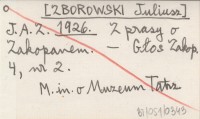 [ZBOROWSKI Juliusz]
J.A.Z. 1926. Z prasy o
Zakopanem. – Głos Zakop.
4, nr 2.
M. in. o Muzeum Tatrz